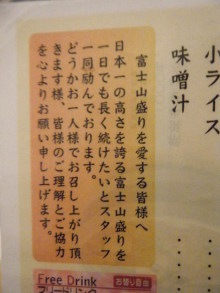 小ライス
味噌汁
富士山盛りを愛する皆様へ
日本一の高さを誇る富士山盛りを
一日でも長く続けたいとスタッフ
一同励んでおります。
どうかお一人様でお召し上がり頂
きます様、皆様のご理解とご協力
を心よりお願い申し上げます。
Free Drink
フリードリンク
お替り自由